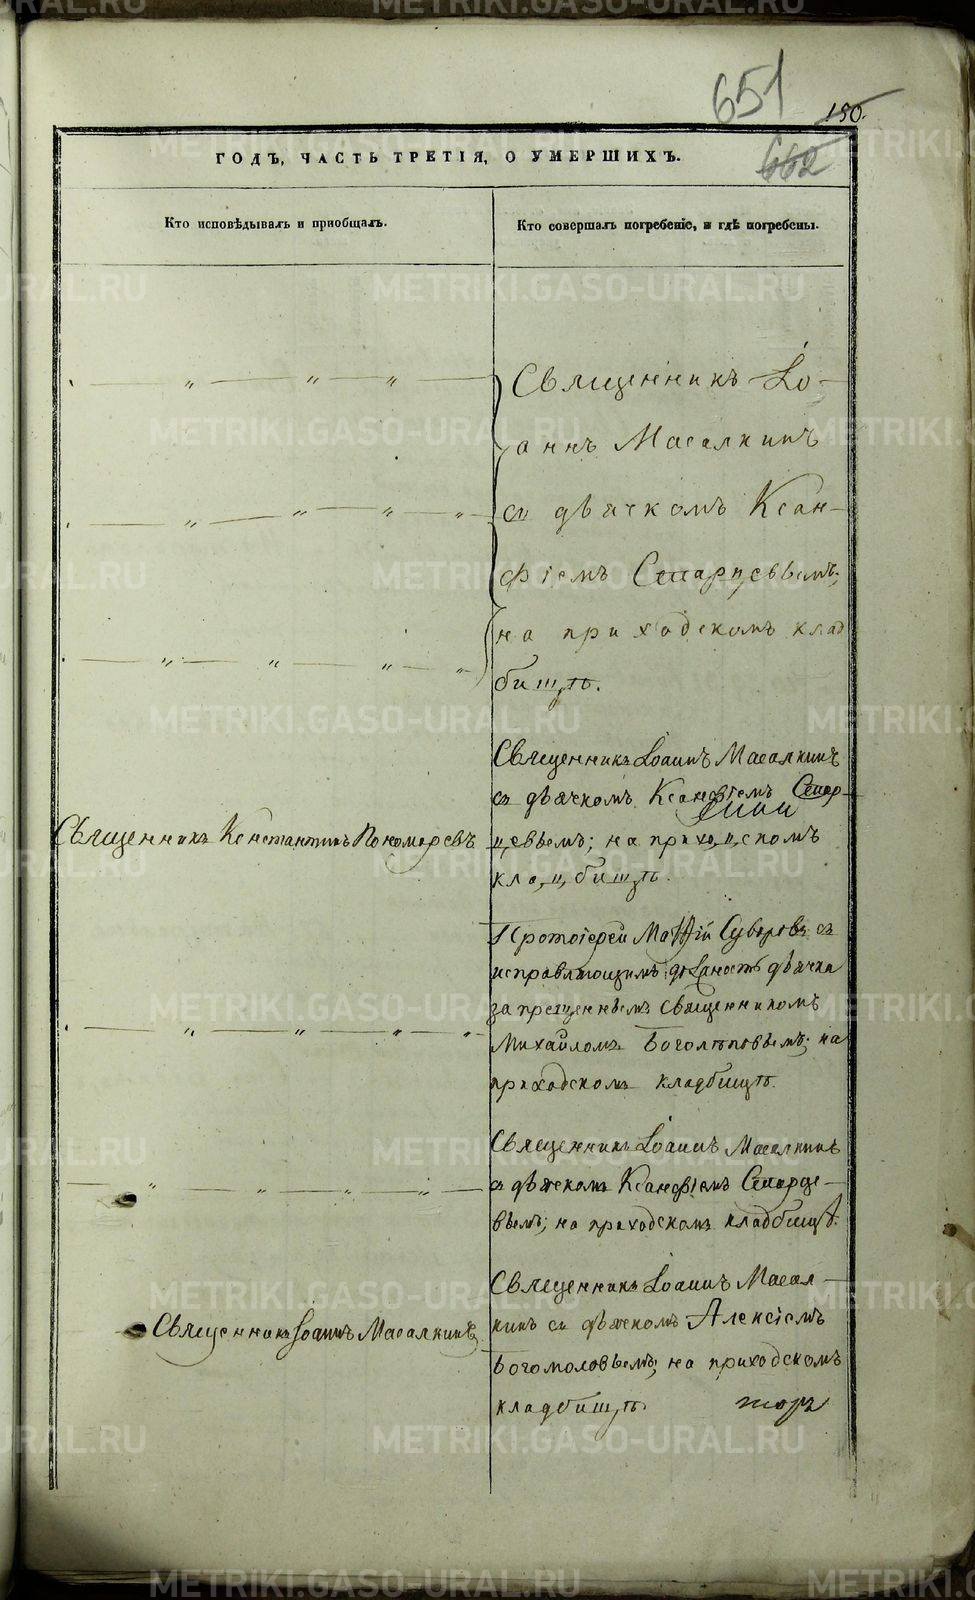 651
150.
662
ГОДЪ, ЧАСТЬ ТРЕТІЯ, О УМЕРШИХЪ.
Кто исповѣдывалъ и приобщалъ.
Кто совершалъ погребеніе, и гдѣ погребены.
Священникъ Іо-
аннъ Масалкинъ
съ дьячкомъ Ксан-
фіемъ Старцевымъ;
на приходскомъ клад
бищѣ.
Священникъ Іоаннъ Масалкинъ
съ дьячкомъ Ксанфіемъ Стар-
цевымъ; на приходскомъ
кладбищѣ.
Священникъ Константинъ Пономаревъ
Протоіерей Матѳій Суворовъ съ
исправляющимъ должность дьячка
запрещеннымъ священникомъ
Михаиломъ Боголѣповымъ; на
приходскомъ кладбищѣ.
Священникъ Іоаннъ Масалкинъ
съ дьячкомъ Ксанфіемъ Старце-
вымъ; на приходскомъ кладбищѣ.
Священникъ Іоаннъ Масалкинъ
Священникъ Іоаннъ Масал-
кинъ съ дьячкомъ Алексіемъ
Богомоловымъ; на приходскомъ
кладбищѣ.
METRIKI.GASO-URAL.RU